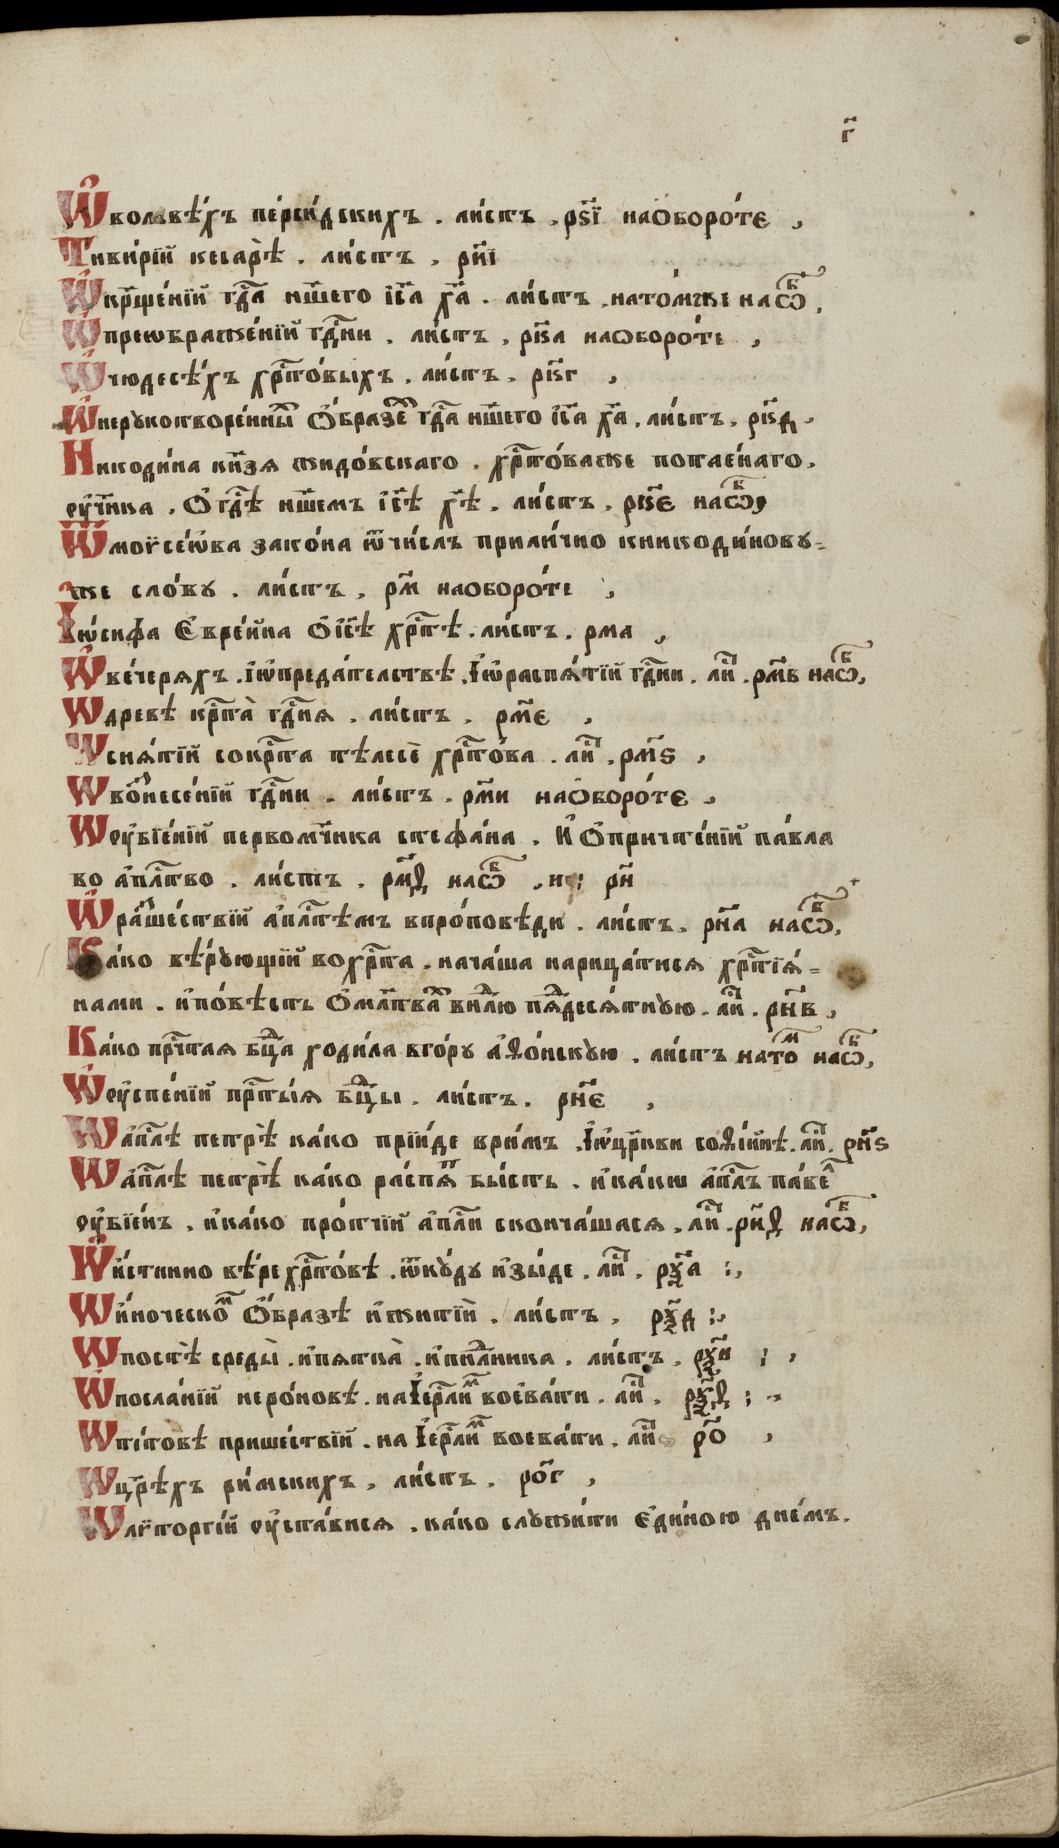 г҃
Ѡ҆ волъвѣ́хъ пе́рси́дскихъ . ли́стъ . рѕ҃і наѻборо́тє ,
Тиви́рїй кесарѣ̀ . ли́стъ . ри҃і
Ѡ҆ кр҃ще́нїй гдⷭ҇а нш҃его іс҃а хр҃а . ли́стъ . нато́мже наѡⷠ҇ ,
Ѡ҆ преѡбраже́нїй гдⷭ҇ни . ли́стъ , рк҃а наѡборо́те ,
Ѡ҆ чюдесѣ́хъ хрⷭ҇то́выхъ . ли́стъ . рк҃г ,
Ѡ҆ нерꙋкотворе́ннѡⷨ ѻ҆́бразеⷨ гдⷭ҇а нш҃его іс҃а х҃а . ли́стъ . рк҃д .
Никоди́ма кн҃зя жидо́вскаго . хрⷭ҇то́важе потае́наго .
ᲂу҆ч҃ника . ѻ҆ гдⷭ҇ѣ нш҃емъ іс҃ѣ х҃ѣ . ли́стъ . рк҃є наѡⷠ҇ ,
Ѿ моѷсе́ѡва зако́на ѿчи́слъ прили́чно кникоди́мовꙋ=
же сло́вꙋ . ли́стъ . рм҃ наоборо́те ;
Іѡ́сифа є҆вре́йна ѻ іс҃ѣ хрⷭ҇тѣ . ли́стъ . рма ,
Ѡ҆ ве́черяхъ . і҆ѡ҆преда́тельствѣ . і҆ѡ҆распя́тїй гдⷭ҇ни . лиⷭ҇ . рм҃в наѡⷠ҇ ,
Ѡ древѣ̀ крⷭ҇та̀ гдⷭ҇ня . ли́стъ . рм҃є ,
Ѡ сня́тїй сокрⷭ҇та тѣлесѐ хрⷭ҇то́ва . лиⷭ҇ . рм҃ѕ ,
Ѡ воⷥнесе́нїй гдⷭ҇ни . ли́стъ . рм҃и наѻборо́тє ,
Ѡ ᲂу҆бїе́нїй первомч҃ника стефа́на . и҆ ѻ҆причте́нїй па́вла
во а҆плⷭ҇тво . ли́стъ . рм҃ѳ наѡⷠ҇ . и ; рн҃
Ѡ҆ раⷥше́ствїй а҆плⷭ҇тѣмъ впро́повѣди . ли́стъ . рн҃а наѡⷠ҇ ,
Ка́ко вѣ́рꙋющїй во хрⷭ҇та . нача́ша нарица́тися хрⷭ҇тїя́=
нами . и҆по́вѣсть ѻ҆ млⷭ҇твѣ вни҃лю пѧⷮдеся́тнꙋю . лиⷭ҇ . рн҃в ,
Ка́ко прч҃тая бцⷣа ходи́ла вго́рꙋ а҆ѳо́нскꙋю . ли́стъ натоⷨ наѡⷠ҇ ,
Ѡ҆ ᲂу҆спе́нїй прⷭ҇ты́я бцⷣы . ли́стъ . рн҃є ,
Ѡ а҆пⷭ҇лѣ петрѣ̀ ка́ко прїи́де ври́мъ . і҆ѡ҆цр҃кви соѳі́йнѣ . лиⷭ҇ . рн҃ѕ
Ѡ а҆пⷭ҇лѣ петрѣ̀ ка́ко ра́спѧⷮ бы́сть . и҆ка́кѡ а҆пⷭ҇лъ па́веⷧ
ᲂу҆бїе́нъ . и҆ка́ко про́тчїй а҆пⷭ҇ли сконча́шася . лиⷭ҇ . рн҃ѳ наѡⷠ҇ ,
Ѡ҆ и́стинно вѣ́ре хрⷭ҇то́вѣ . ѿкꙋ́дꙋ и҆зы́де . лиⷭ҇ . рѯ҃а :,
Ѡ и҆́ноческоⷨ ѻ҆́бразѣ и҆ житїй . ли́стъ . рѯ҃д :,
Ѡ постѣ̀ среды̀ . и҆пятка̀ . и҆пнⷣлника . ли́стъ . рѯ҃и ; ,
Ѡ҆ посла́нїй неро́новѣ . на і҆ерⷭ҇лиⷨ воева́ти . лиⷭ҇ . рѯ҃ѳ ; ,
Ѡ ті́товѣ прише́ствїй . на і҆ерⷭ҇лиⷨ воева́ти . лиⷭ҇ ро҃ ,
Ѡ цр҃ѣхъ ри́мскихъ . ли́стъ . ро҃г ,
Ѡ лїторгі́й ᲂу҆ста́вися . ка́ко слꙋжи́ти є҆ди́ною дне́мъ .